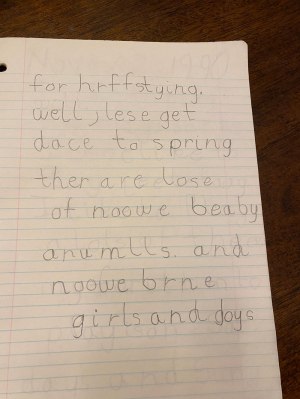 for hrffstying.
well, lese get
dace to spring
ther are lose
of noowe beaby
anumlls. and
noowe brne
girls and doys